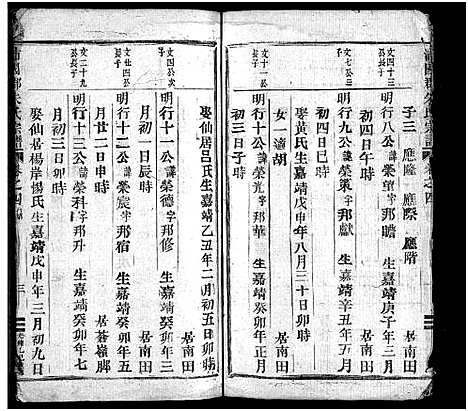 子三 應隆 應際 應階
文四十三公長子
明行八公諱榮望字邦瞻 生嘉靖庚子年三月
初四日午時 居南田
明行九公諱榮策字邦獻 生嘉靖辛丑年五月
初四日卯時 居南田
娶黃氏生嘉靖戊申年八月三十日卯時
女一適胡
明行十公諱榮 字邦華 生嘉靖癸卯年正月
初三日子時 居南田
娶仙居呂氏生嘉靖乙丑年二月初五日卯時
文四公次子
明行十一公諱榮德字邦修 生嘉靖癸卯年三
月初一日辰時 居南田
文廿四公長子
明行十二公諱榮宸字邦宿 生嘉靖癸卯年五
月廿二日申時 居蒼嶺脚
文二十九公長子
明行十三公諱榮科字邦升 生嘉靖癸卯年七
月初三日
娶仙居楊岸楊氏生嘉靖戊申年三月初九日
朱氏宗譜 卷之四 三